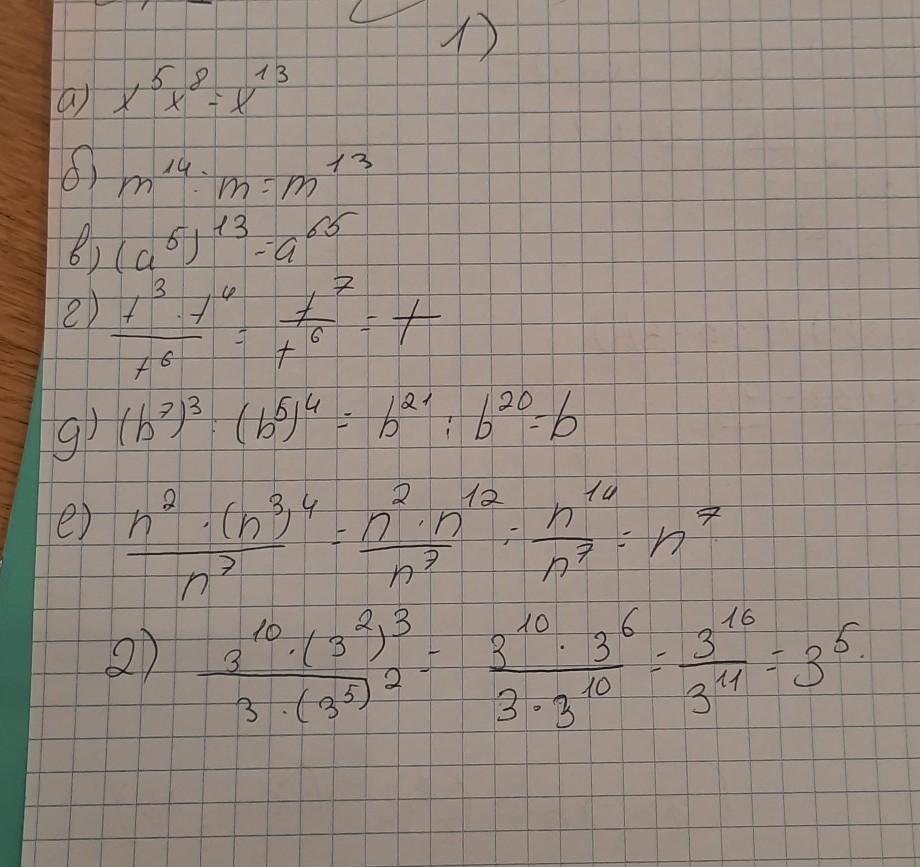 1)
а) x⁵x⁸ = x¹³
б) m¹⁴ : m = m¹³
в) (a⁵)¹³ = a⁶⁵
г) (t³ · t⁴)/t⁶ = t⁷/t⁶ = t
д) (b⁷)³ : (b⁵)⁴ = b²¹ : b²⁰ = b
е) (n² · (n³)⁴)/n⁷ = (n² · n¹²)/n⁷ = n¹⁴/n⁷ = n⁷.
2) (3¹⁰ · (3²)³)/(3 · (3⁵)²) = (3¹⁰ · 3⁶)/(3 · 3¹⁰) = 3¹⁶/3¹¹ = 3⁵.